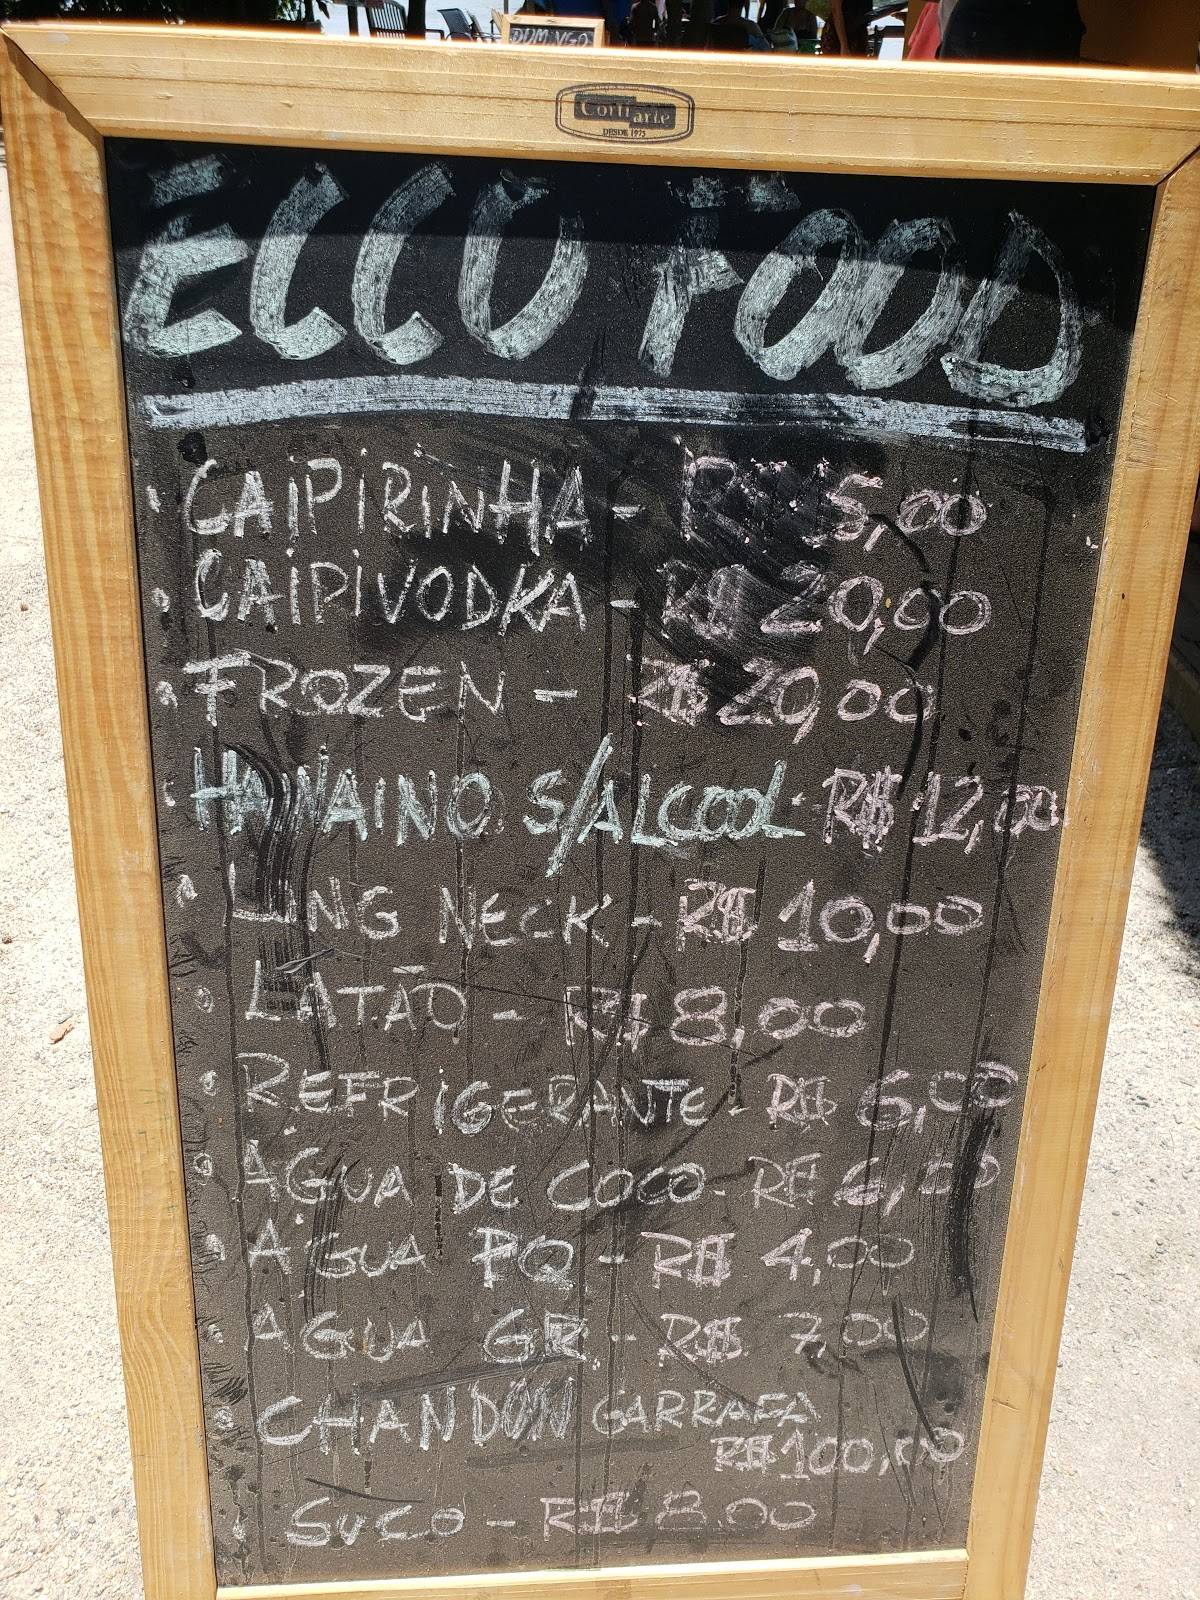 DOMINGO
Confrarte
DESDE 1975
ECCO FOOD
CAIPIRINHA - R$ 5,00
CAIPIVODKA - R$ 20,00
FROZEN - R$ 20,00
HAWAINO S/ALCOOL R$ 12,00
LONG NECK - R$ 10,00
LATÃO - R$ 8,00
REFRIGERANTE - R$ 6,00
AGUA DE COCO - R$ 6,00
AGUA PQ - R$ 4,00
AGUA GR. - R$ 7,00
CHANDON GARRAFA
R$ 100,00
SUCO - R$ 8.00